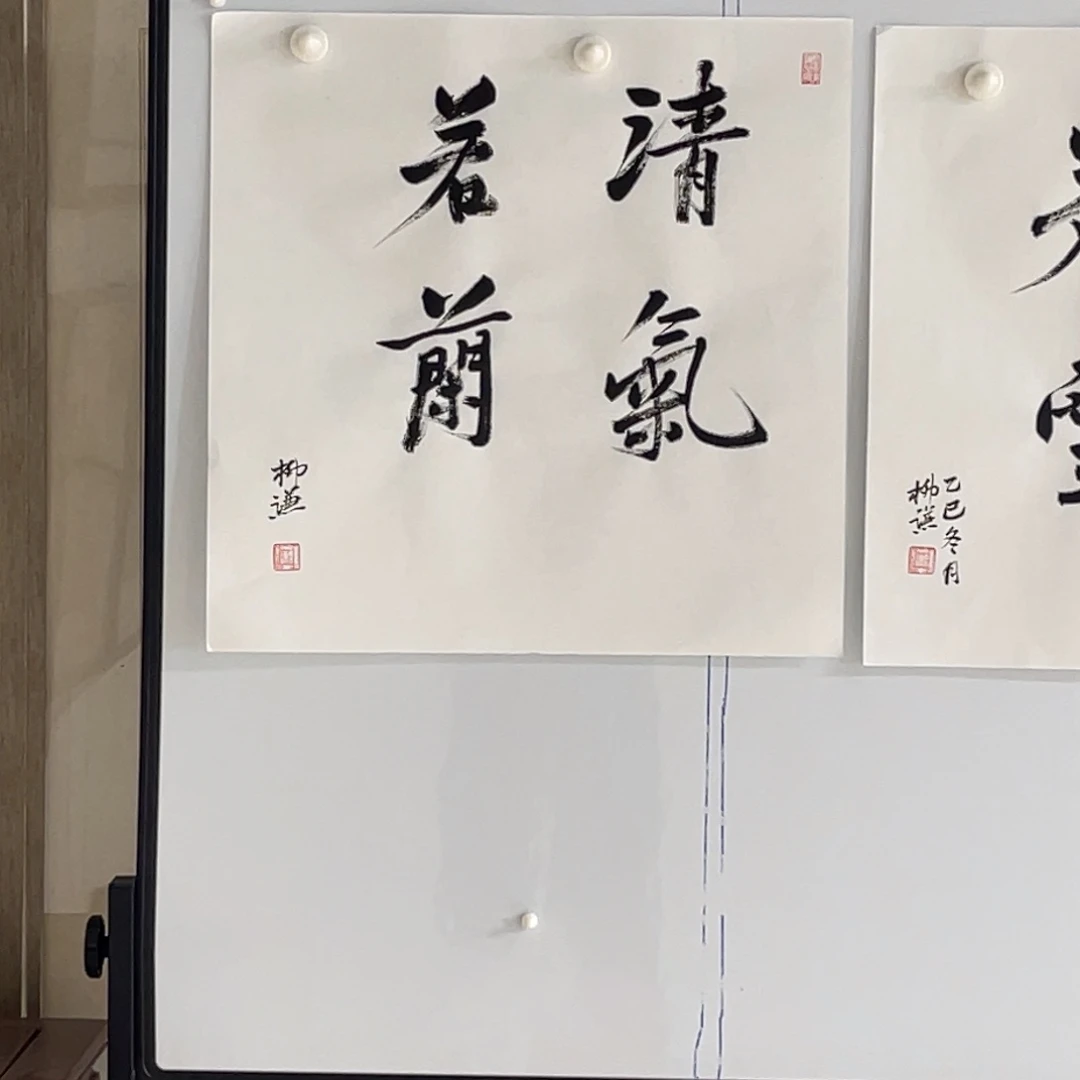 清氣
若蘭
柳謙
乙巳冬月
柳謙